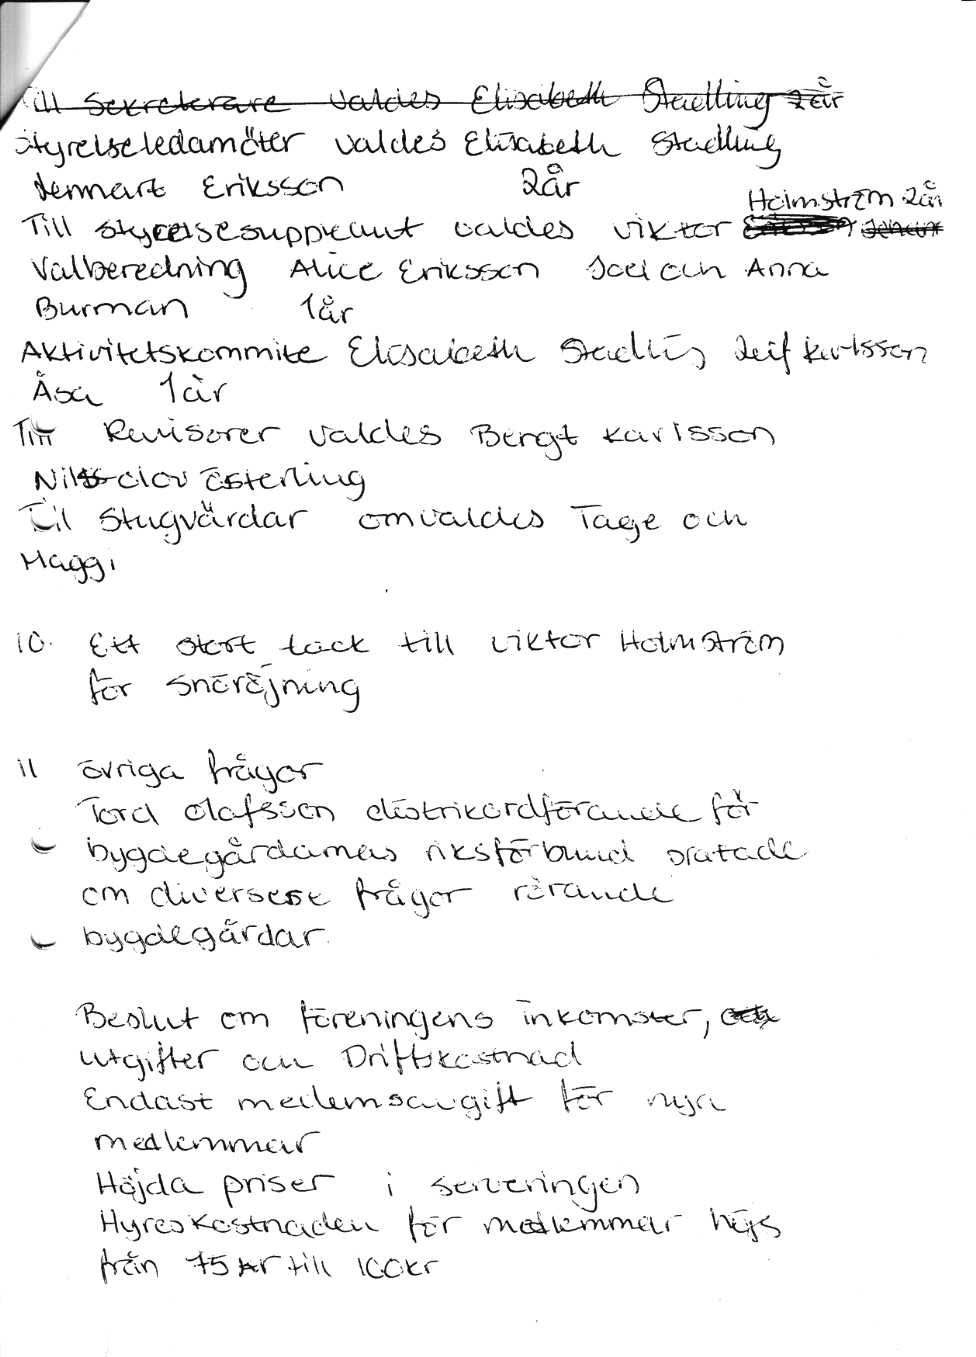 Till Sekreterare valdes Elisabeth Stadling 2år
Styrelseledamöter valdes Elisabeth Stadling
Lennart Eriksson 2år
Holmström 2år
Till styrelsesuppleant valdes viktor
Valberedning Alice Eriksson Joel och Anna
Burman 1år
Aktivitetskommite Elisabeth Stadling Leif Karlsson
Åsa 1år
Till Revisorer valdes Bengt Karlsson
Nils-olov Österling
Till Stugvärdar omvaldes Tage och
Maggi
10. Ett stort tack till viktor Holmström
för snöröjning
11 övriga frågor
Tord Olafsson distrikordförande för
bygdegårdarnas riksförbund pratade
om diverse frågor rörande
bygdegårdar.
Beslut om föreningens inkomster, och
utgifter och Driftskostnad
Endast medlemsavgift för nya
medlemmar
Höjda priser i serveringen
Hyreskostnaden för medlemmar höjs
från 75 kr till 100kr